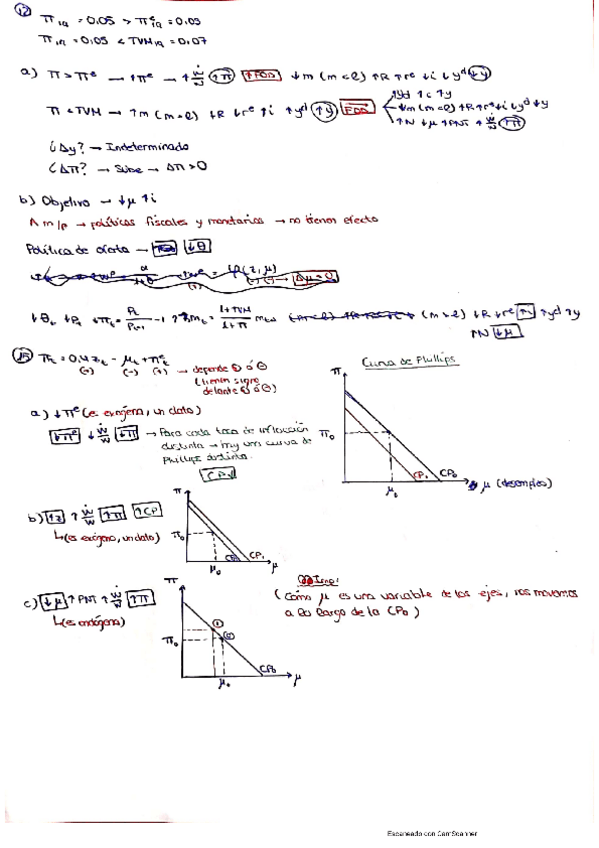 12
π 1Q = 0.05 > π^e 1Q = 0.03
π 1Q = 0.05 < TVM 1Q = 0.07
a) π > π^e → ↑π^e → ↑ẇ/w ↑π ↑FOD ↓m (m<l) ↑R ↑r^e ↓i ↓y^d ↓y
π < TVM → ↑m (m>l) ↓R ↓r^e ↑i ↑y^d ↑y FDD
↑yd ↑c ↑y
↓m (m<l) ↑R ↑r^e ↓i ↓y^d ↓y
↑N ↓μ ↑PNT ↑ẇ/w ↑π
¿Δy? → Indeterminado
¿Δπ? → Sube → Δπ > 0
b) Objetivo → ↓μ ↑i
A m/p → políticas fiscales y monetarias → no tienen efecto
Política de oferta → ↓θ
↓θ, ↓Pt ↓πt = Pt/Pt-1 - 1 mt = 1+TVM/1+π mt-1 (m>l) ↓R ↓r^e ↑i ↑yd ↑y
↑N ↓μ
15 πt = 0,4zt - μt + πt^e → depende
(+) (-) (+)
(tienen signo
delante ⊕ ó ⊖)
Curva de Phillips
π
a) ↓π^e (es exógena, un dato)
↓π^e ↓ẇ/w ↓π → Para cada tasa de inflación
distinta → hay una curva de
Phillips distinta.
↓CP
π0
CP1 CP0
μ (desempleo)
μ0
b) ↑z ↑ẇ/w ↑π ↑CP
↳(es exógeno, un dato)
π
π0
CP0 CP1
μ0 μ
c) ↓μ ↑PNT ↑ẇ/w ↑π
↳(es endógena)
π
π0
CP0
μ0 μ
(Como μ es una variable de los ejes, nos movemos
a lo largo de la CP0)
Escaneado con CamScanner